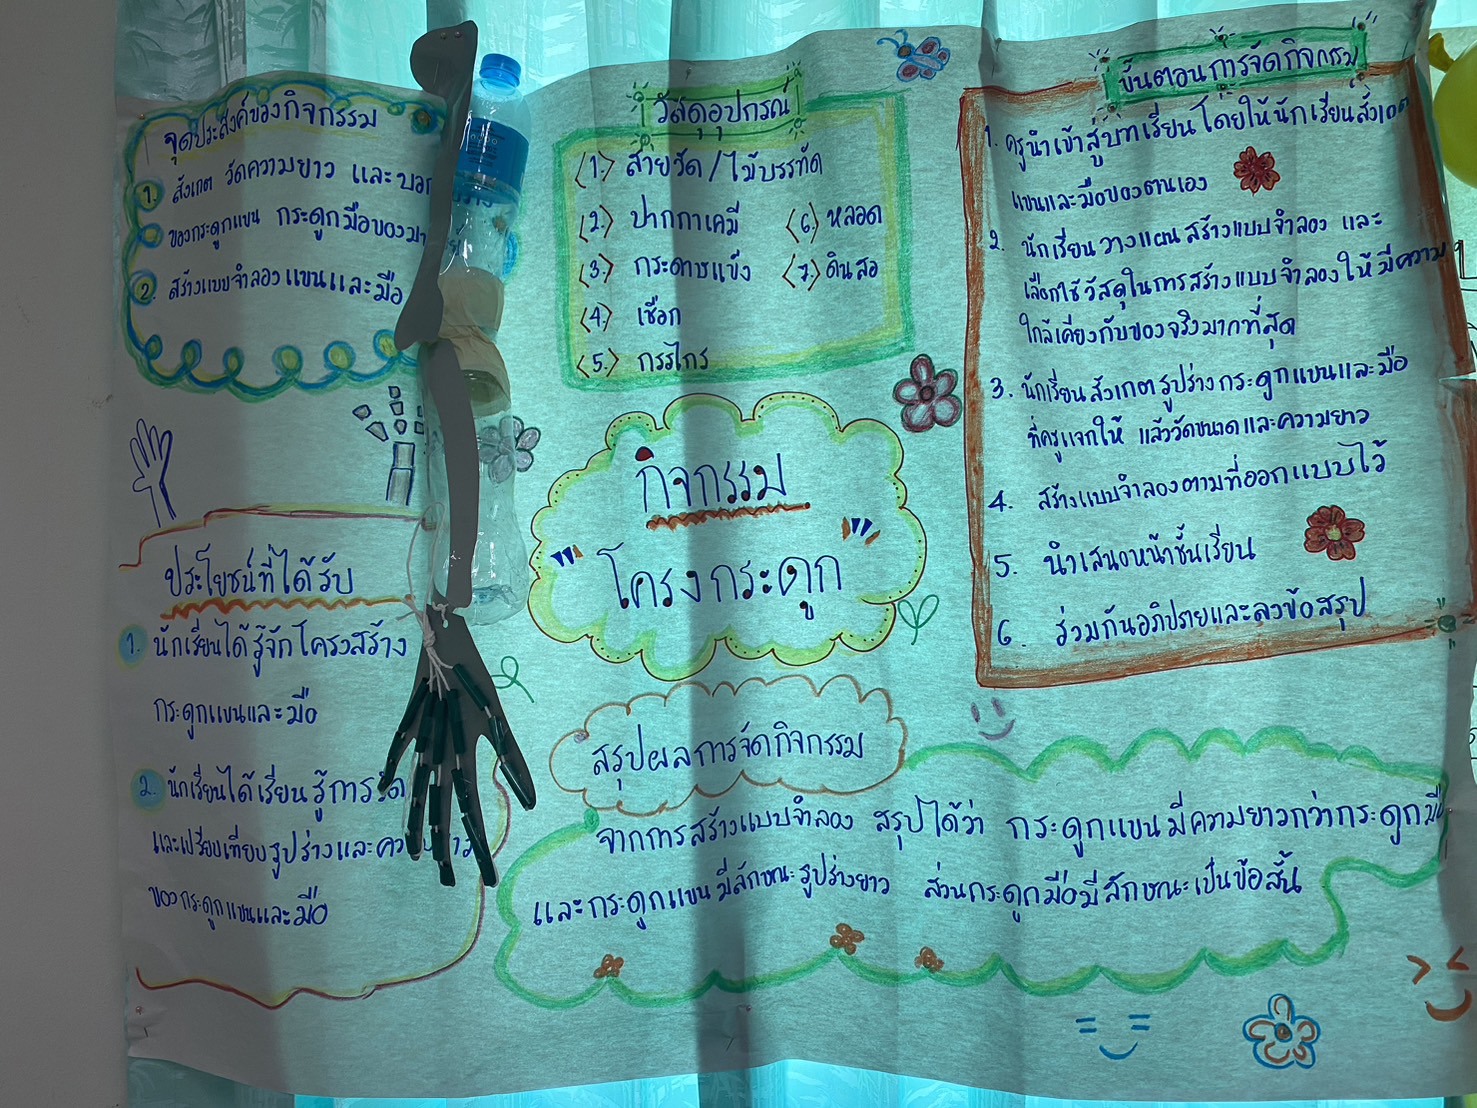 จุดประสงค์ของกิจกรรม
1. สังเกต วัดความยาว และบอก
ของกระดูกแขน กระดูกมือของ
2. สร้างแบบจำลองแขนและมือ
ประโยชน์ที่ได้รับ
1. นักเรียนได้รู้จักโครงสร้าง
กระดูกแขนและมือ
2. นักเรียนได้เรียนรู้การวัด
และเปรียบเทียบรูปร่างและ
ของกระดูกแขนและมือ
วัสดุอุปกรณ์
<1.> สายวัด / ไม้บรรทัด
<2.> ปากกาเคมี <6.> หลอด
<3.> กระดาษแข็ง <7.> ดินสอ
<4.> เชือก
<5.> กรรไกร
กิจกรรม
"โครงกระดูก"
สรุปผลการจัดกิจกรรม
จากการสร้างแบบจำลอง สรุปได้ว่า กระดูกแขนมีความยาวกว่ากระดูกมือ
และกระดูกแขนมีลักษณะรูปร่างยาว ส่วนกระดูกมือมีลักษณะเป็นข้อสั้น
ขั้นตอนการจัดกิจกรรม
1. ครูนำเข้าสู่บทเรียนโดยให้นักเรียนสังเกต
แขนและมือของตนเอง
2. นักเรียนวางแผนสร้างแบบจำลอง และ
เลือกใช้วัสดุในการสร้างแบบจำลองให้มีความ
ใกล้เคียงกับของจริงมากที่สุด
3. นักเรียนสังเกตรูปร่างกระดูกแขนและมือ
ที่ครูแจกให้ แล้ววัดขนาดและความยาว
4. สร้างแบบจำลองตามที่ออกแบบไว้
5. นำเสนอหน้าชั้นเรียน
6. ร่วมกันอภิปรายและลงข้อสรุป